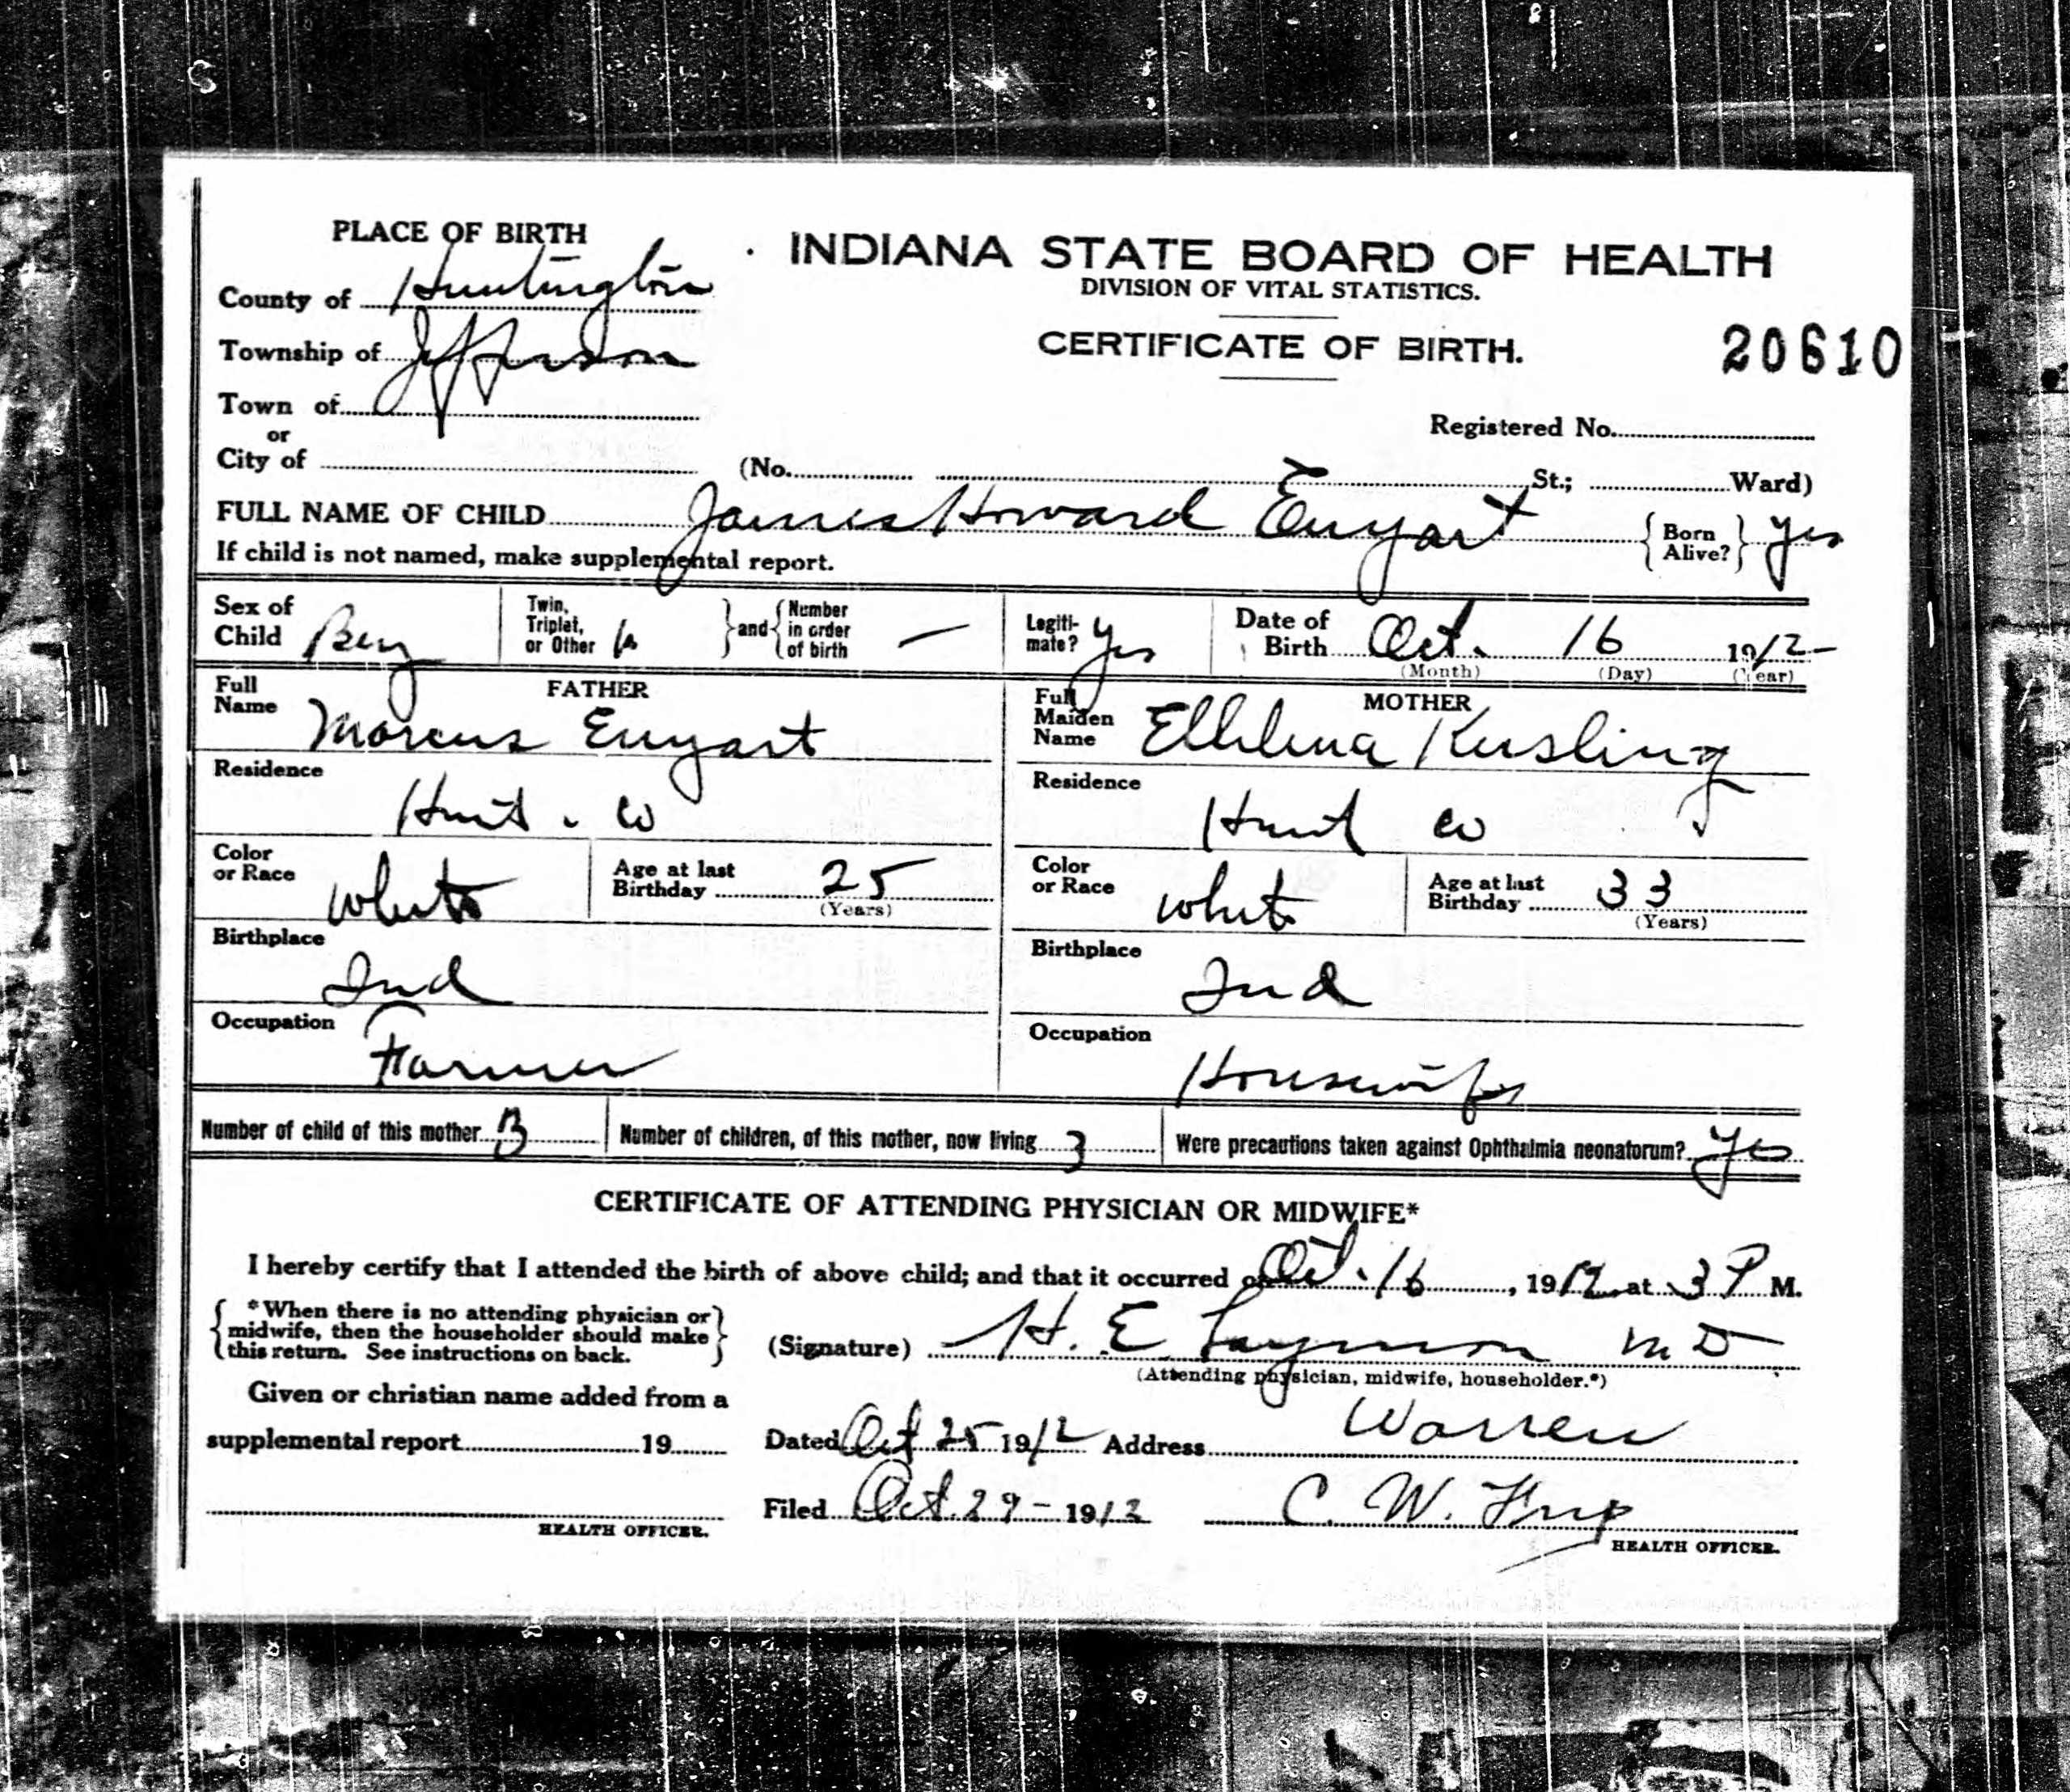 PLACE OF BIRTH
INDIANA STATE BOARD OF HEALTH
DIVISION OF VITAL STATISTICS.
CERTIFICATE OF BIRTH.
20610
County of Huntington
Township of Jefferson
Town of
or
City of
Registered No.
(No. St.; Ward)
FULL NAME OF CHILD James Howard Enyart { Born Alive? } Yes
If child is not named, make supplemental report.
Sex of Child Boy
Twin, Triplet, or Other } and { Number in order of birth —
Legiti-mate? Yes
Date of Birth Oct. 16 1912
(Month) (Day) (Year)
FATHER
Full Name Marcus Enyart
Residence
Hunt. Co
Color or Race White
Age at last Birthday 25
(Years)
Birthplace
Ind
Occupation
Farmer
MOTHER
Full Maiden Name Keisling
Residence
Hunt Co
Color or Race White
Age at last Birthday 33
(Years)
Birthplace
Ind
Occupation
Housewife
Number of child of this mother 3
Number of children, of this mother, now living 3
Were precautions taken against Ophthalmia neonatorum? Yes
CERTIFICATE OF ATTENDING PHYSICIAN OR MIDWIFE*
I hereby certify that I attended the birth of above child; and that it occurred on Oct. 16, 1912 at 3 P M.
{ *When there is no attending physician or
midwife, then the householder should make
this return. See instructions on back. }
(Signature) H. E. Laymon MD
(Attending physician, midwife, householder.*)
Given or christian name added from a
supplemental report 19
HEALTH OFFICER.
Dated Oct 25 1912 Address Warren
Filed Oct. 29 - 1912 C. W.
HEALTH OFFICER.